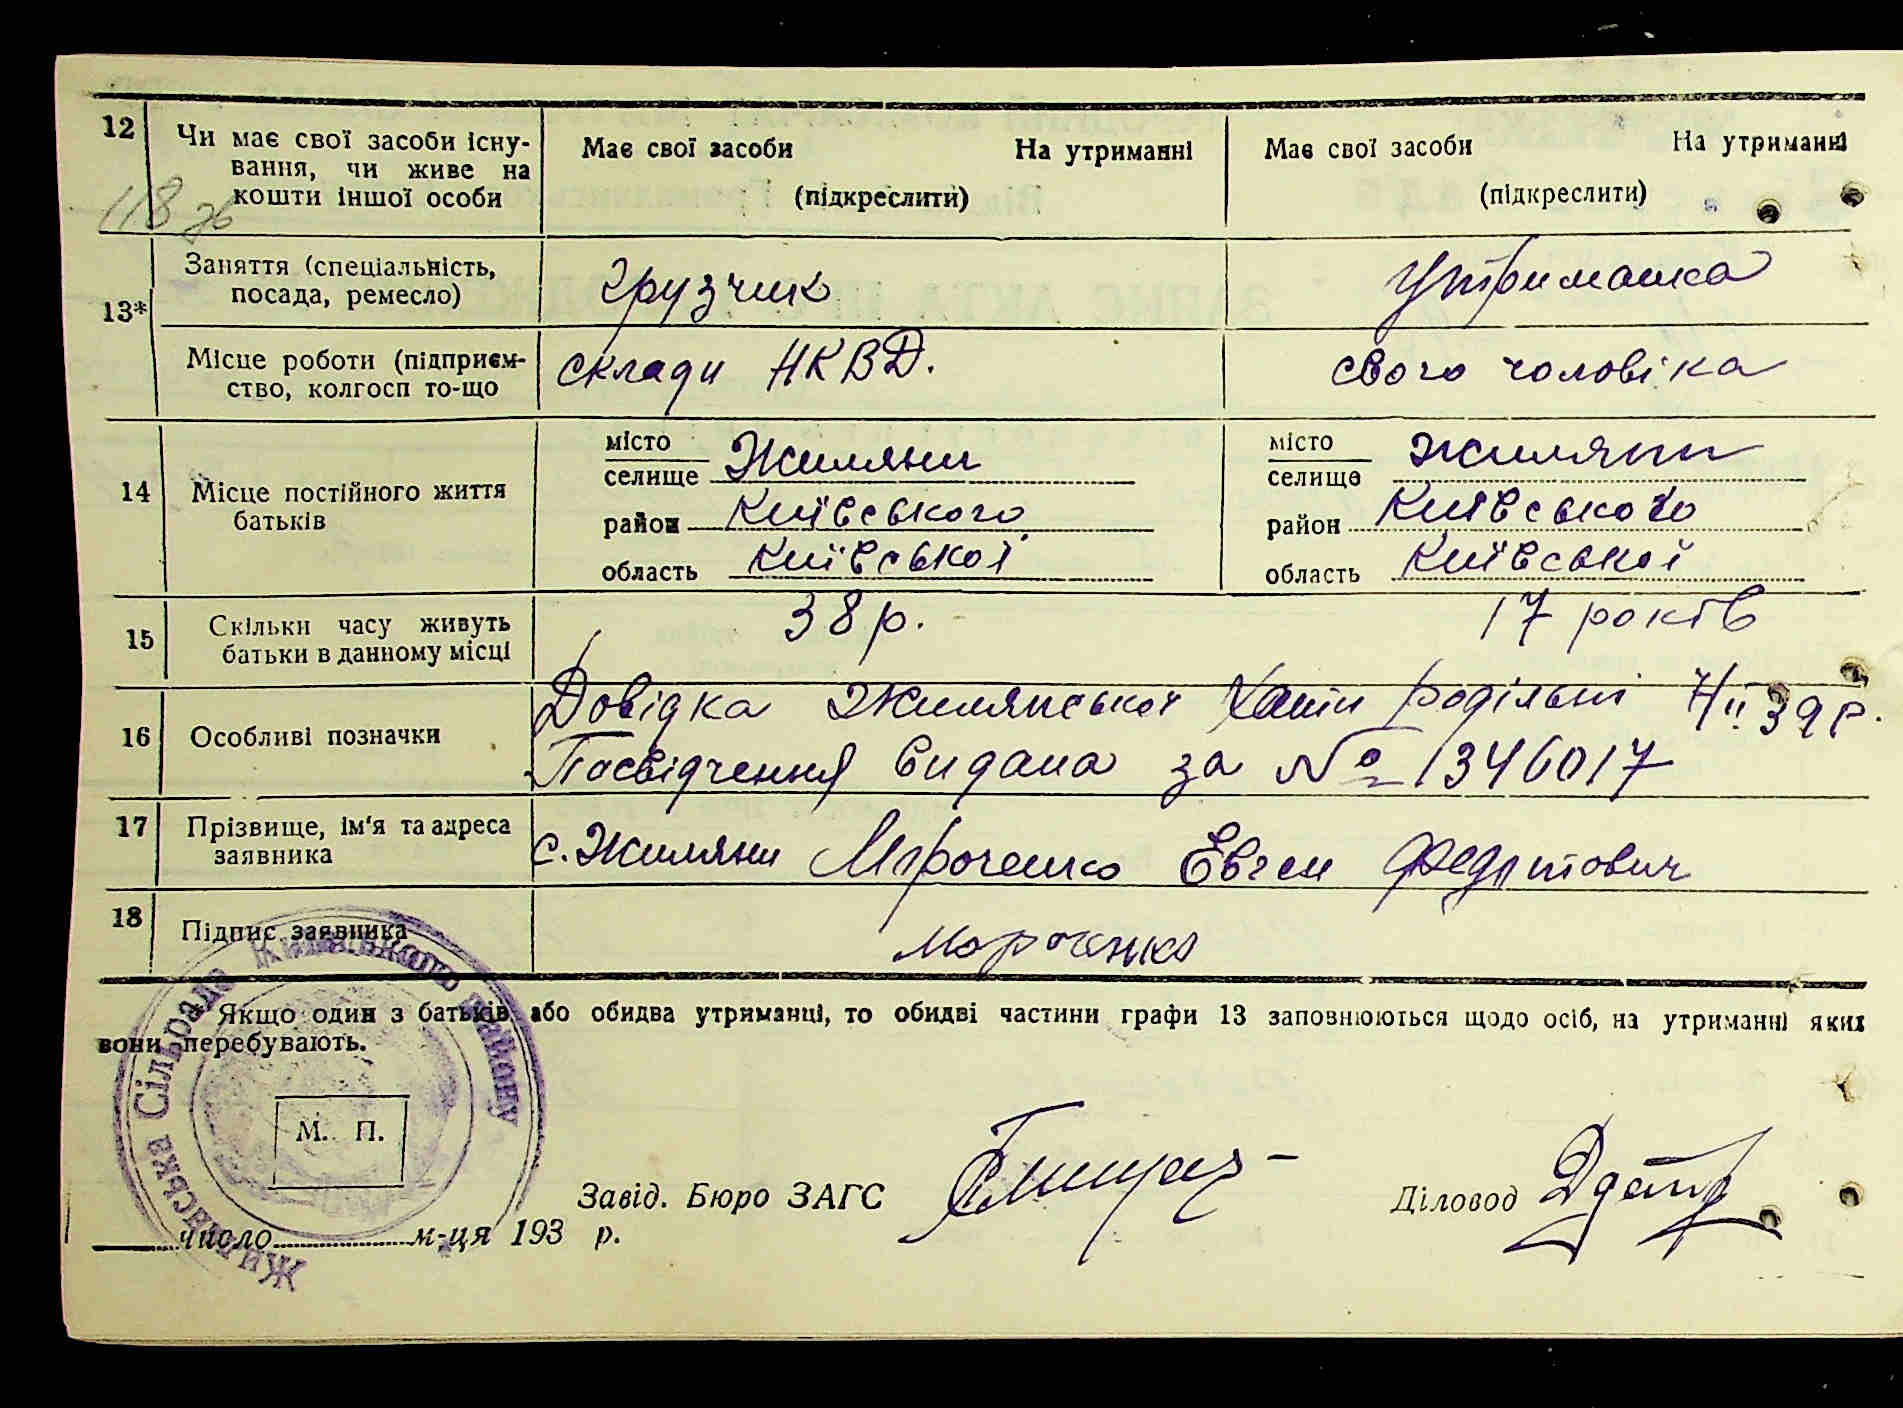 12 Чи має свої засоби існу-
вання, чи живе на
кошти іншої особи
Має свої засоби На утриманні
(підкреслити)
Має свої засоби На утриманні
(підкреслити)
118 зв
13* Заняття (спеціальність,
посада, ремесло)
грузчик
утриманка
Місце роботи (підприєм-
ство, колгосп то-що
склади НКВД.
свого чоловіка
14 Місце постійного життя
батьків
місто
селище Жиляни
район Київського
область Київської
місто
селище Жиляни
район Київського
область Київської
15 Скільки часу живуть
батьки в данному місці
38 р.
17 років
16 Особливі позначки
Довідка Жилянської Хати родільні 7/ІІ 39 р.
Посвідчення видана за № 1346017
17 Прізвище, ім'я та адреса
заявника
с. Жиляни Мороченко Євген Федотович
18 Підпис заявника
Мороченко
* Якщо один з батьків або обидва утриманці, то обидві частини графи 13 заповнюються щодо осіб, на утриманні яких
вони перебувають.
Жилянська Сільрада Київського району
М. П.
Завід. Бюро ЗАГС
Діловод
число м-ця 193 р.